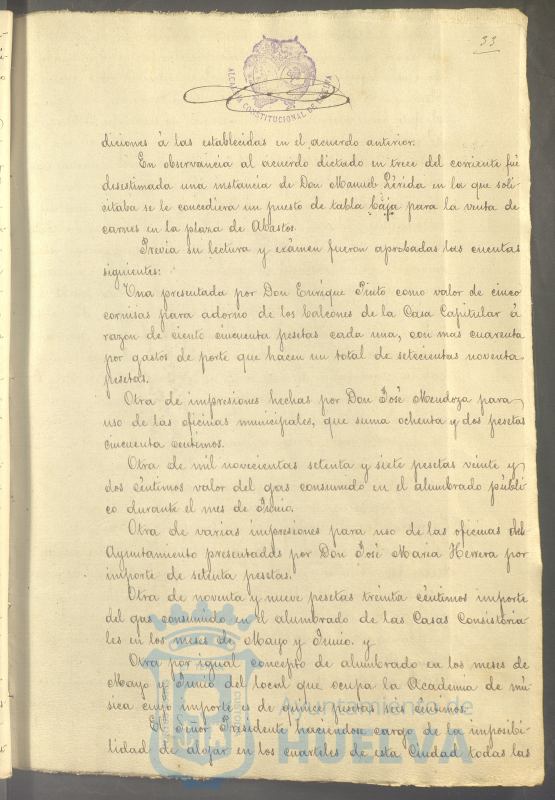 33
ALCALDIA CONSTITUCIONAL DE HUELVA
diciones á las establecidas en el acuerdo anterior.
En observancia al acuerdo dictado en trece del corriente fué
desestimada una instancia de Don Manuel Périda en la que soli-
citaba se le concediera un puesto de tabla baja para la venta de
carnes en la plaza de Abastos.
Previa su lectura y exámen fueron aprobadas las cuentas
siguientes:
Una presentada por Don Enrique Pinto como valor de cinco
cornisas para adorno de los balcones de la Casa Capitular á
razón de ciento cincuenta pesetas cada una, con más cuarenta
por gastos de porte que hacen un total de setecientas noventa
pesetas.
Otra de impresiones hechas por Don José Mendoza para
uso de las oficinas municipales, que suma ochenta y dos pesetas
cincuenta céntimos.
Otra de mil novecientas setenta y siete pesetas veinte y
dos céntimos valor del gas consumido en el alumbrado públi-
co durante el mes de Junio.
Otra de varias impresiones para uso de las oficinas del
Ayuntamiento presentadas por Don José Maria Herrera por
importe de setenta pesetas.
Otra de noventa y nueve pesetas treinta céntimos importe
del gas consumido en el alumbrado de las Casas Consistoria-
les en los meses de Mayo y Junio. y
Otra por igual concepto de alumbrado en los meses de
Mayo y Junio del local que ocupa la Academia de mú-
sica cuyo importe es de quince pesetas seis céntimos.
El Señor Presidente haciendose cargo de la imposibi-
lidad de alojar en los cuarteles de esta Ciudad todas las
Ayuntamiento de
HUELVA